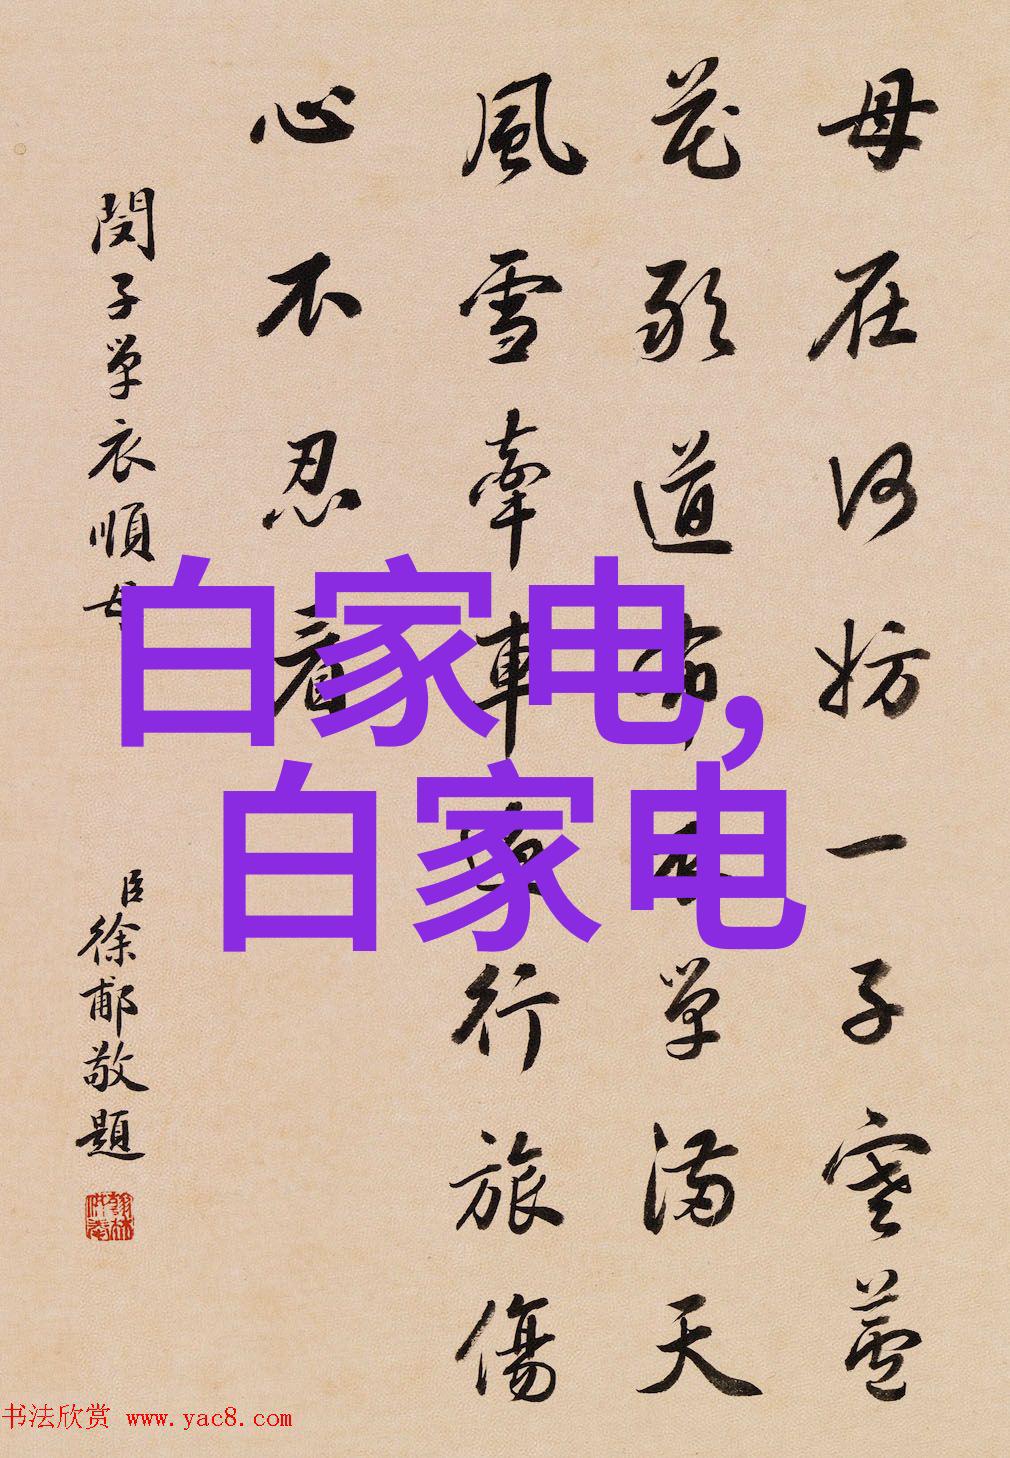 母在何妨一子寒芦
花敢道布單滿天
風雪牽車行旅傷
心不忍看
閔子單衣順母
臣徐郙敬題
白家电,
白家电
书法欣赏 www.yac8.com